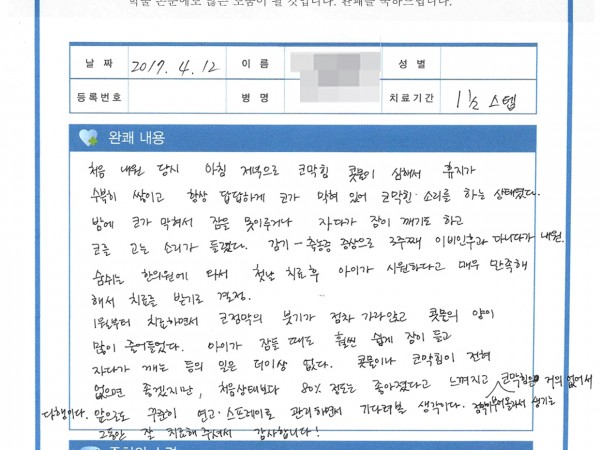 학술 논문에도 많은 도움이 될 것입니다. 완쾌를 축하드립니다.
날 짜 2017. 4. 12 이 름 성 별
등록번호 병 명 치료기간 11소 스텝
완쾌 내용
처음 내원 당시 아침 저녁으로 코막힘 콧물이 심해서 휴지가
수북히 쌓이고 항상 답답하게 코가 막혀 있어 코막힌 소리를 하는 상태였다.
밤에 코가 막혀서 잠을 못이루거나 자다가 잠이 깨기도 하고
코를 고는 소리가 들렸다. 감기-축농증 증상으로 3주째 이비인후과 다니다가 내원.
숨쉬는 한의원에 와서 첫날 치료 후 아이가 시원하다고 매우 만족해
해서 치료를 받기로 결정.
1월부터 치료하면서 코점막의 붓기가 점차 가라앉고 콧물의 양이
많이 줄어들었다. 아이가 잠들 때도 훨씬 쉽게 잠이 들고
자다가 깨는 등의 일은 더이상 없다. 콧물이나 코막힘이 전혀
없으면 좋겠지만, 처음상태보다 80% 정도는 좋아졌다고 느껴지고 코막힘은 거의 없어서
다행이다. 앞으로도 꾸준히 연고·스프레이로 관리하면서 기다려볼 생각이다. 점막이 부어올라서 생기는
그동안 잘 치료해 주셔서 감사합니다!